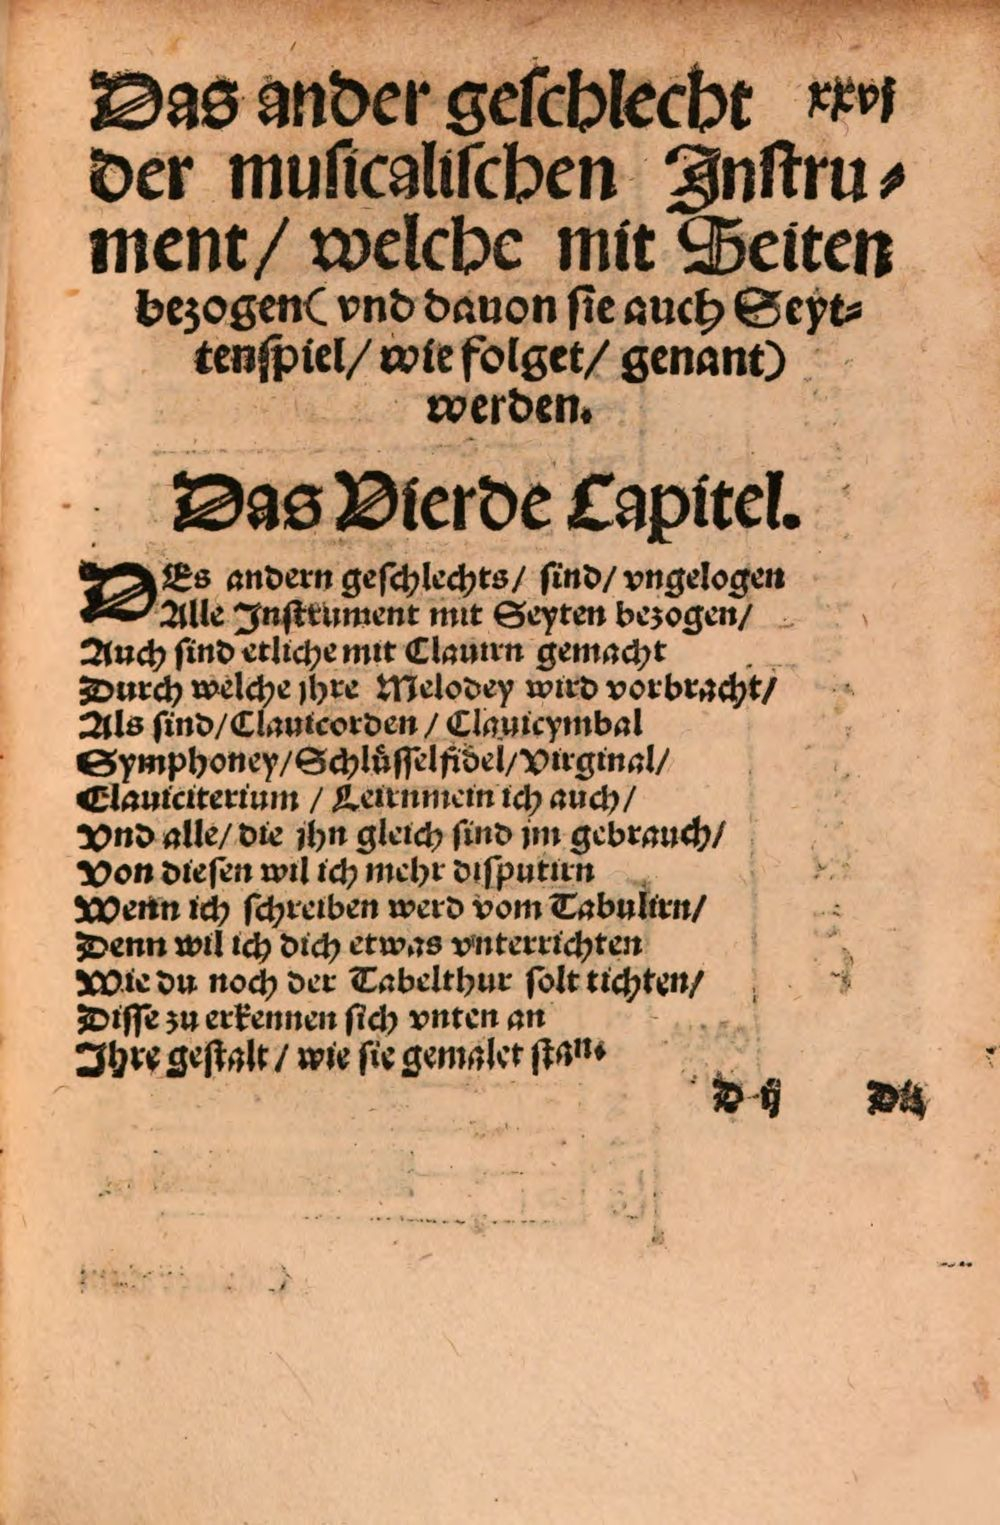 Das ander geſchlecht xxvj
der muſicaliſchen Inſtru⸗
ment/ welche mit Seiten
bezogen( vnd dauon ſie auch Seyt⸗
tenſpiel/ wie folget/ genant)
werden.
Das Vierde Capitel.
DEs andern geſchlechts/ ſind/ vngelogen
Alle Inſtrument mit Seyten bezogen/
Auch ſind etliche mit Clauirn gemacht
Durch welche jhre Melodey wird vorbracht/
Als ſind/ Clauicorden / Clauicymbal
Symphoney/ Schlůſſelfidel/ Virginal/
Clauiciterium / Leirnmein ich auch/
Vnd alle/ die jhn gleich ſind jm gebrauch/
Von dieſen wil ich mehr diſputirn
Wenn ich ſchreiben werd vom Tabulirn/
Denn wil ich dich etwas vnterrichten
Wie du noch der Tabelthur ſolt tichten/
Diſſe zu erkennen ſich vnten an
Ihre geſtalt / wie ſie gemalet ſtan.
D ij